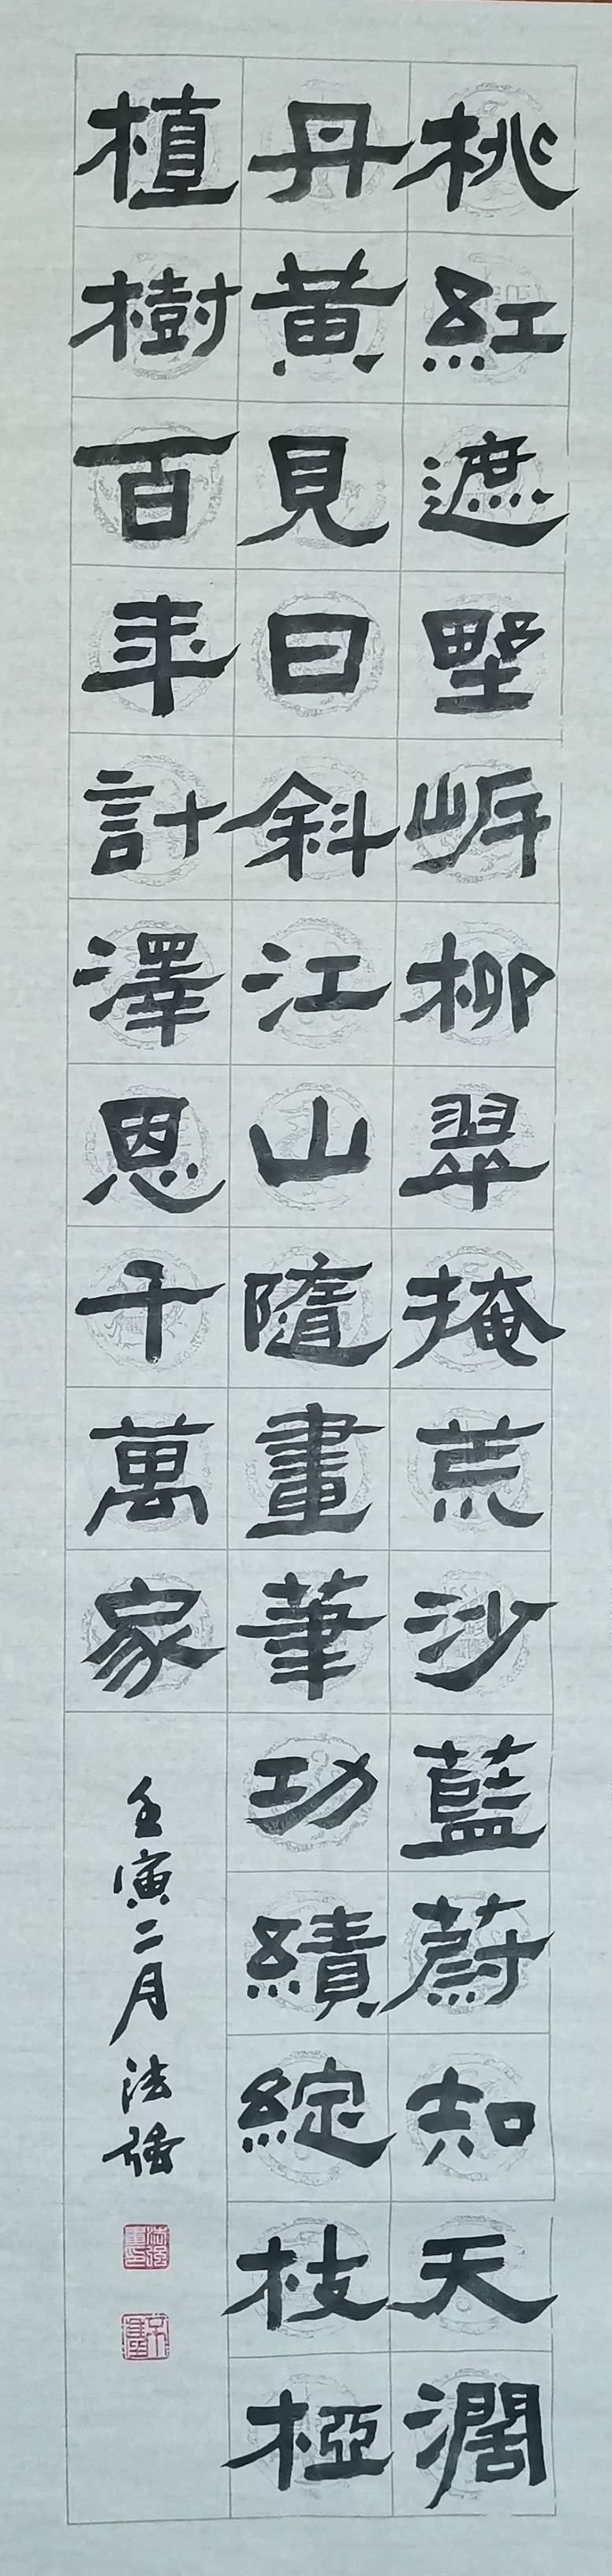 桃紅遮墅岸柳翠掩荒沙藍蔚知天濶
丹黃見日斜江山隨畫筆功績綻枝椏
植樹百年計澤恩千萬家
壬寅二月法强